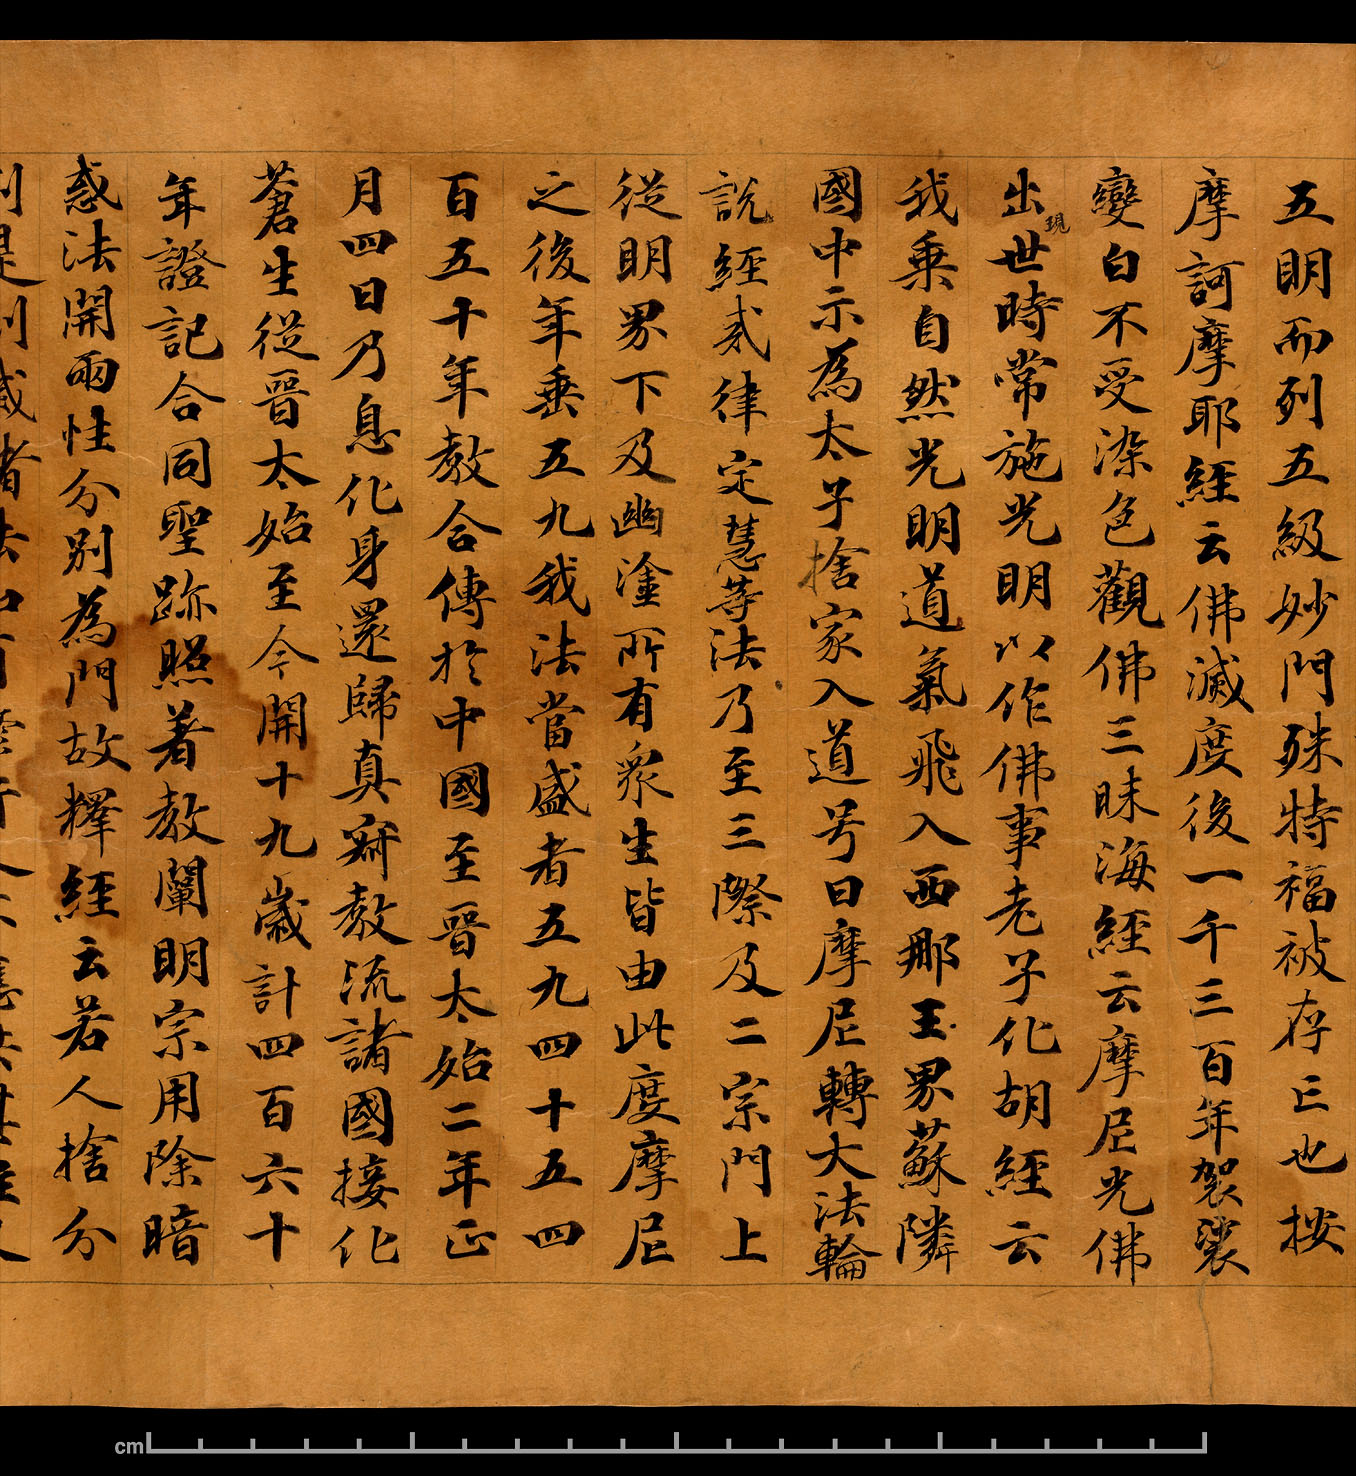 五明而列五級妙門殊特福被存亡也按
摩訶摩耶經云佛滅度後一千三百年袈裟
變白不受染色觀佛三昧海經云摩尼光佛
出現世時常施光明以作佛事老子化胡經云
我乘自然光明道氣飛入西那王界蘇隣
國中示為太子捨家入道号曰摩尼轉大法輪
說經戒律定慧等法乃至三際及二宗門上
從明界下及幽塗所有衆生皆由此度摩尼
之後年垂五九我法當盛者五九四十五四
百五十年教合傳於中國至晉太始二年正
月四日乃息化身還歸真寂教流諸國接化
蒼生從晉太始至今開十九歲計四百六十
年證記合同聖跡照著教闡明宗用除暗
惑法開兩性分別為門故釋經云若人捨分
別是則滅者法如有雲行人不其性人